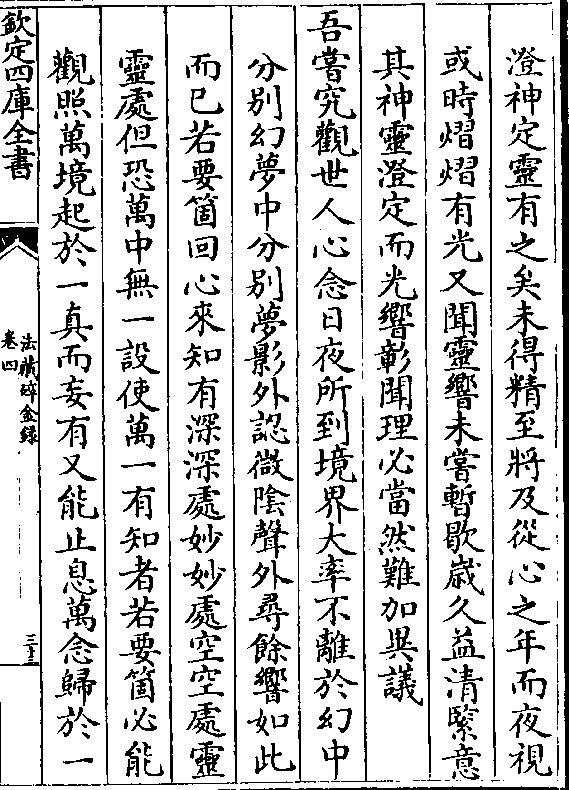 澄神定靈有之矣未得精至將及從心之年而夜視
或時熠熠有光又聞靈響未嘗暫歇歳久益清緊意
其神靈澄定而光響彰聞理必當然難加異議
吾嘗究觀世人心念日夜所到境界大率不離於幻中
分別幻夢中分別夢影外認微陰聲外尋餘響如此
而已若要箇回心來知有深深處妙妙處空空處靈
靈處但恐萬中無一設使萬一有知者若要箇必能
觀照萬境起於一真而妄有又能止息萬念歸於一
欽定四庫全書
法藏碎金録
卷四
三十三